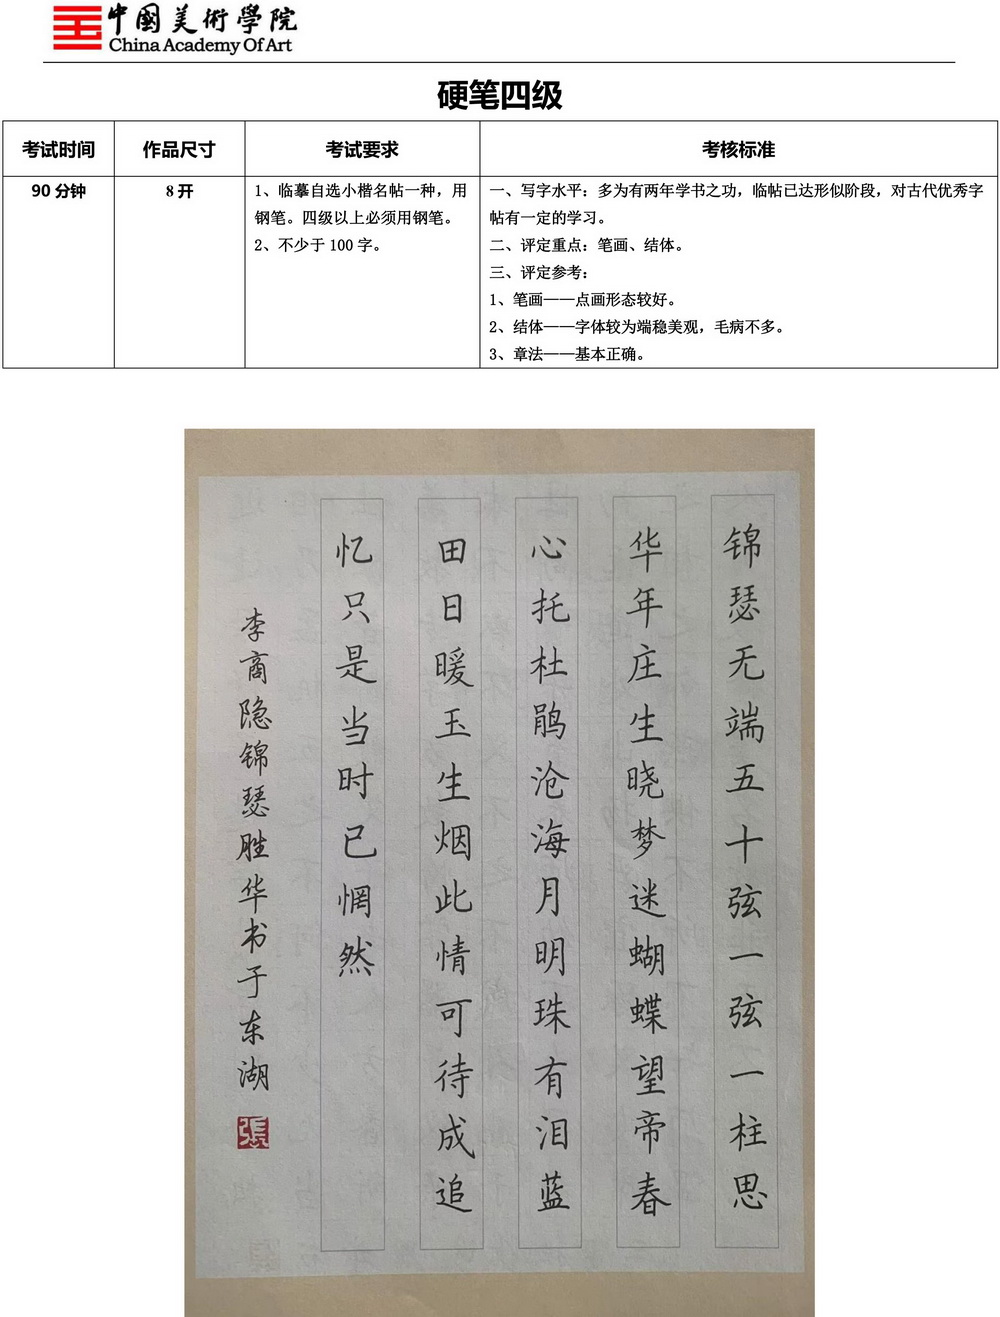 中國美術學院
China Academy Of Art
硬笔四级
考试时间
作品尺寸
考试要求
考核标准
90 分钟
8 开
1、临摹自选小楷名帖一种，用
钢笔。四级以上必须用钢笔。
2、不少于 100 字。
一、写字水平：多为有两年学书之功，临帖已达形似阶段，对古代优秀字
帖有一定的学习。
二、评定重点：笔画、结体。
三、评定参考：
1、笔画——点画形态较好。
2、结体——字体较为端稳美观，毛病不多。
3、章法——基本正确。
锦瑟无端五十弦一弦一柱思
华年庄生晓梦迷蝴蝶望帝春
心托杜鹃沧海月明珠有泪蓝
田日暖玉生烟此情可待成追
忆只是当时已惘然
李商隐锦瑟胜华书于东湖
張